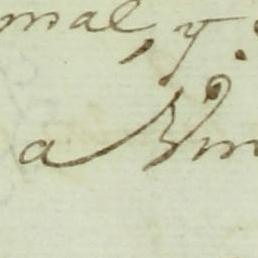 mal, y
a Vm